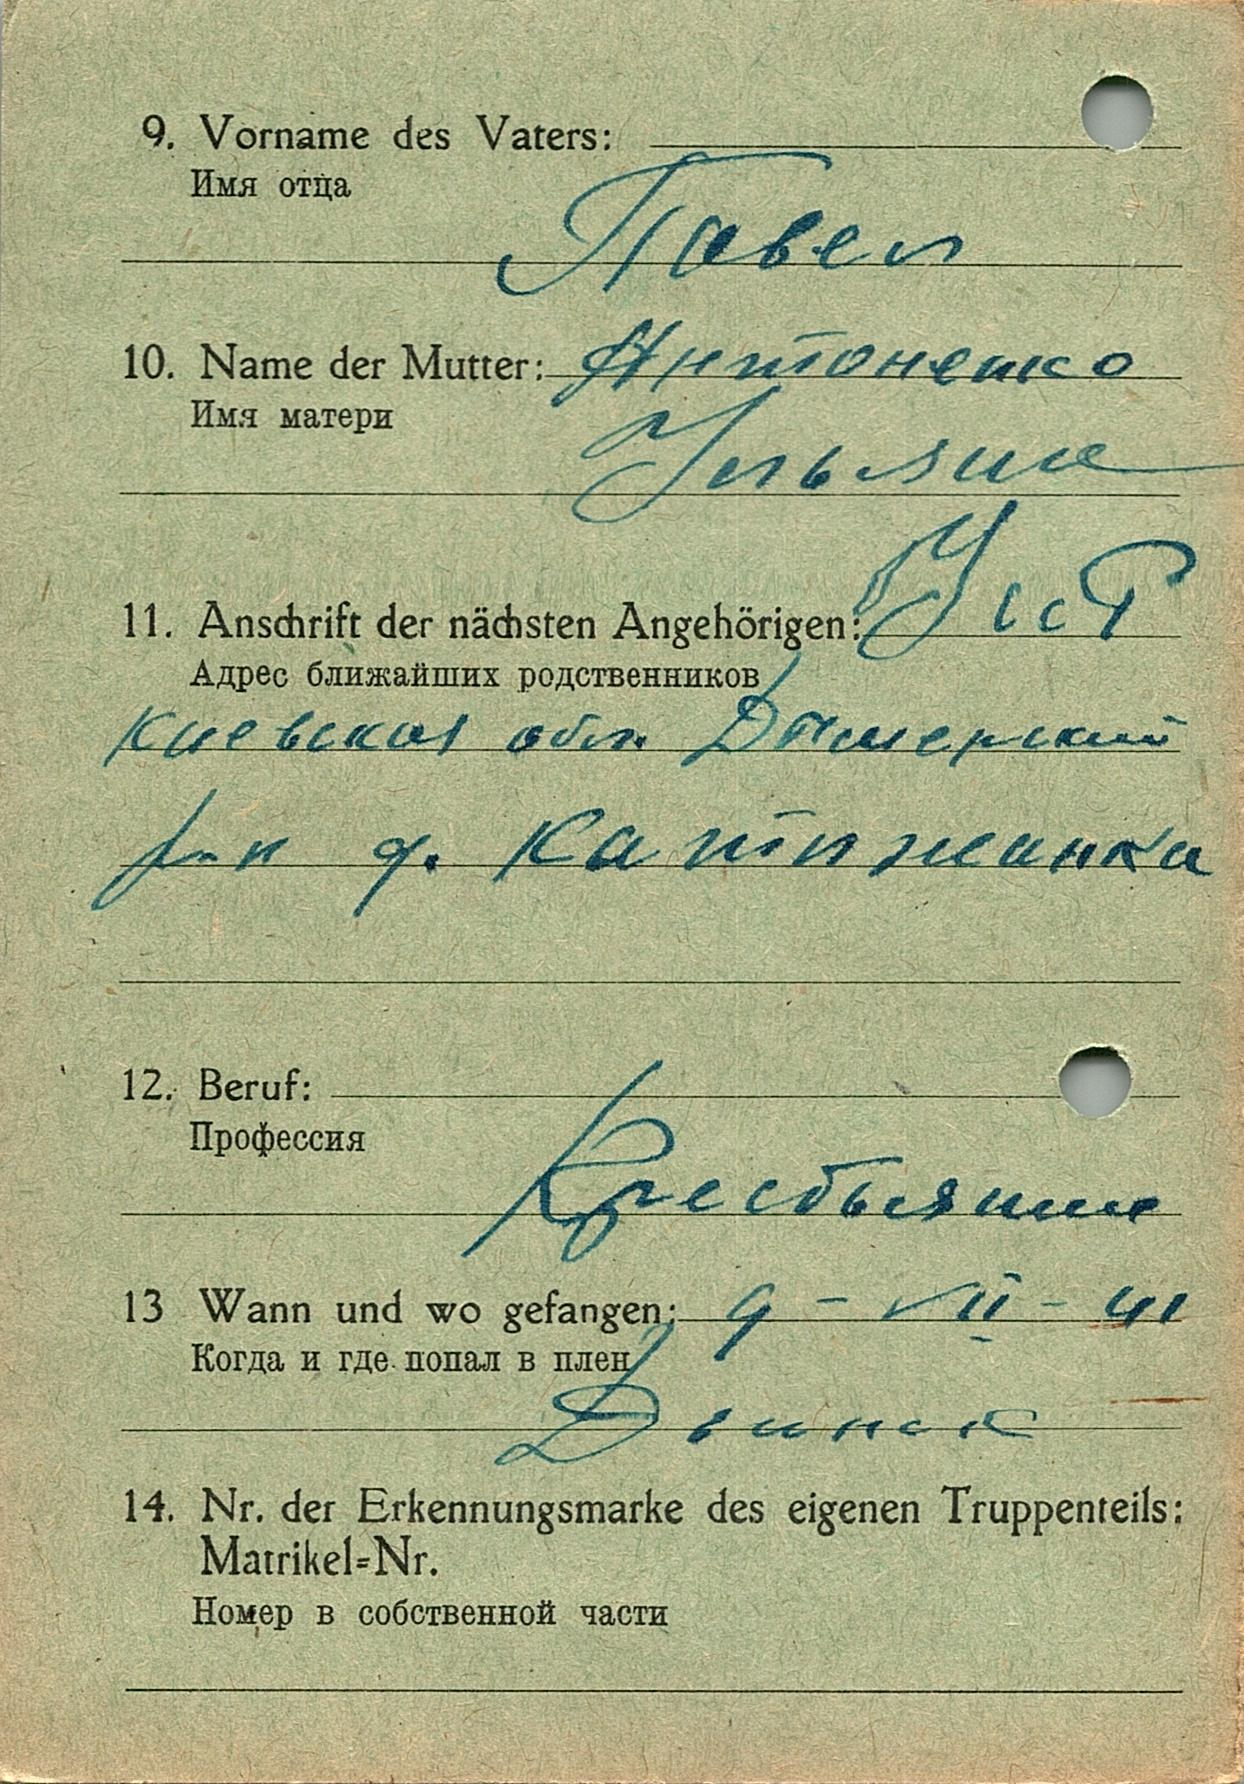 9. Vorname des Vaters:
Имя отца
Павел
10. Name der Mutter: Антоненко
Имя матери
Ульяна
11. Anschrift der nächsten Angehörigen: УССР
Адрес ближайших родственников
Киевская обл. Дымерский
р-н д. Катюжанка
12. Beruf:
Профессия
Кресбыянин
13 Wann und wo gefangen: 9 - VII - 41
Когда и где попал в плен
Двинск
14. Nr. der Erkennungsmarke des eigenen Truppenteils:
Matrikel=Nr.
Номер в собственной части